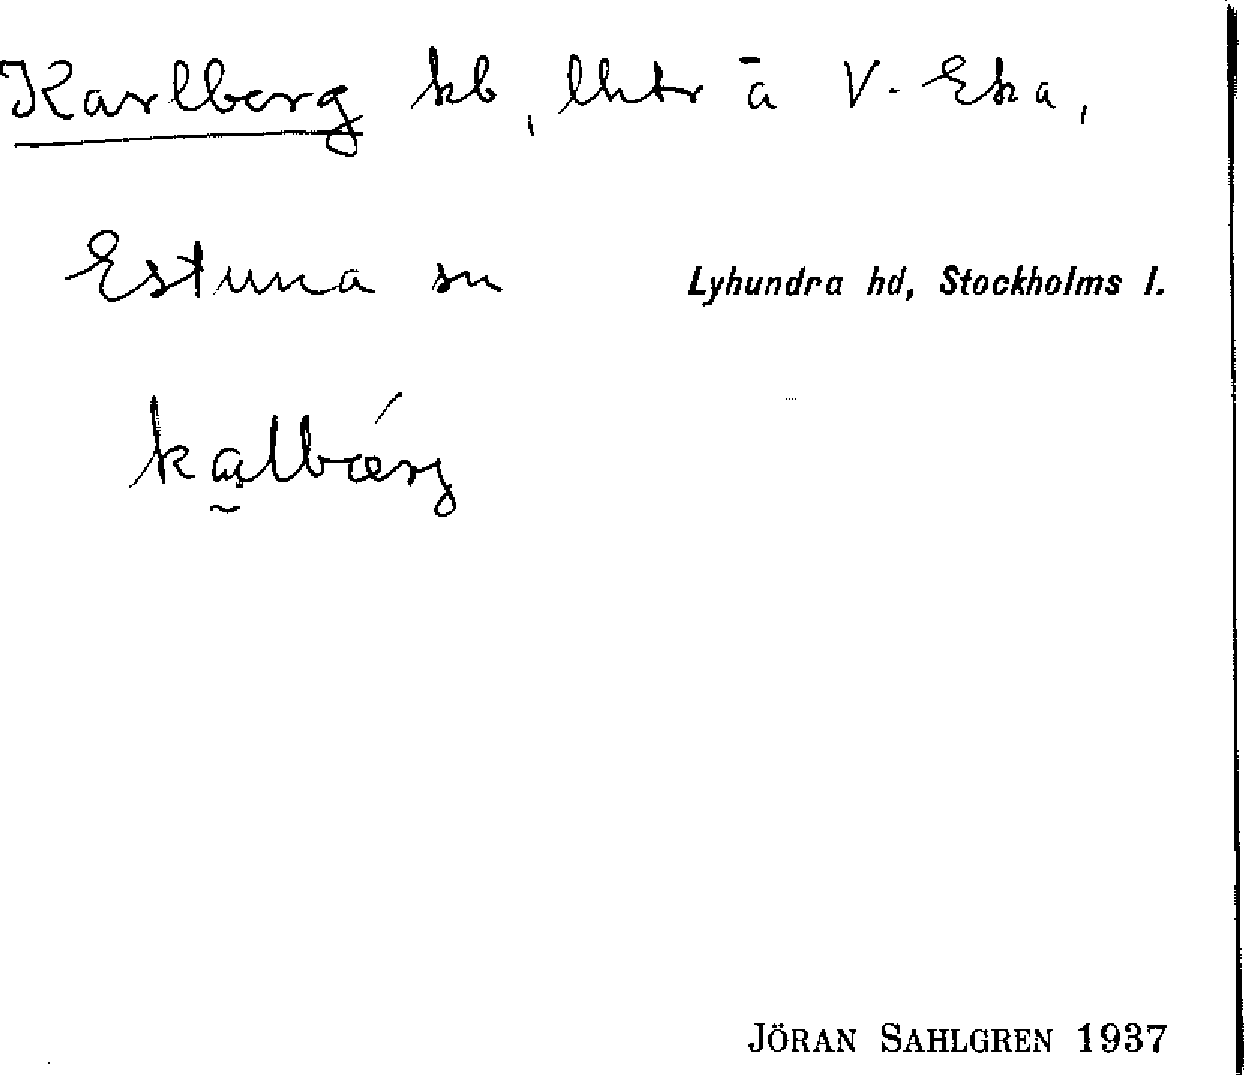 Karlberg kb, lhtr å V. Eka,
Estuna sn Lyhundra hd, Stockholms l.
kalbærj
JÖRAN SAHLGREN 1937